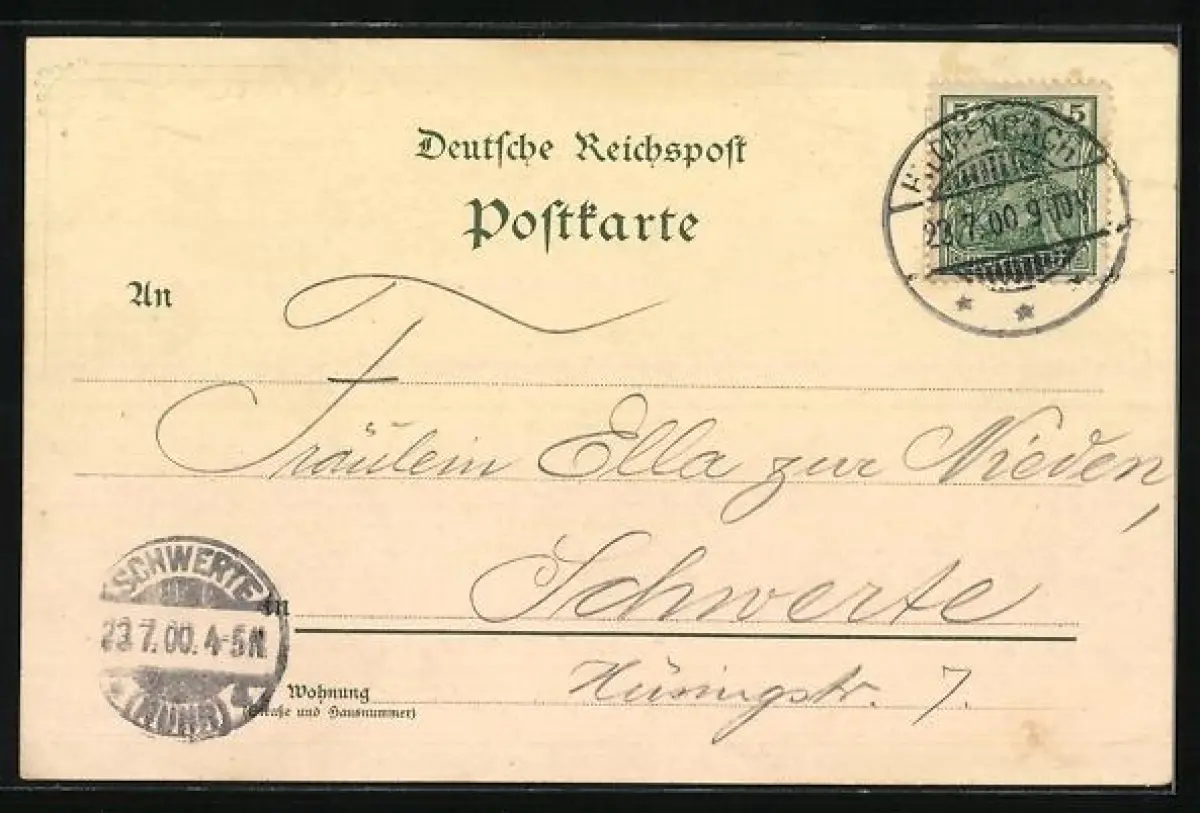 Deutsche Reichspost
Postkarte
5 5
HILCHENBACH
23.7.00.9-10V
An
Fräulein Ella zur Nieden,
Schwerte
in
SCHWERTE
23.7.00.4-5N.
(RUHR)
Wohnung
(Straße und Hausnummer)
Hüsingstr. 7.